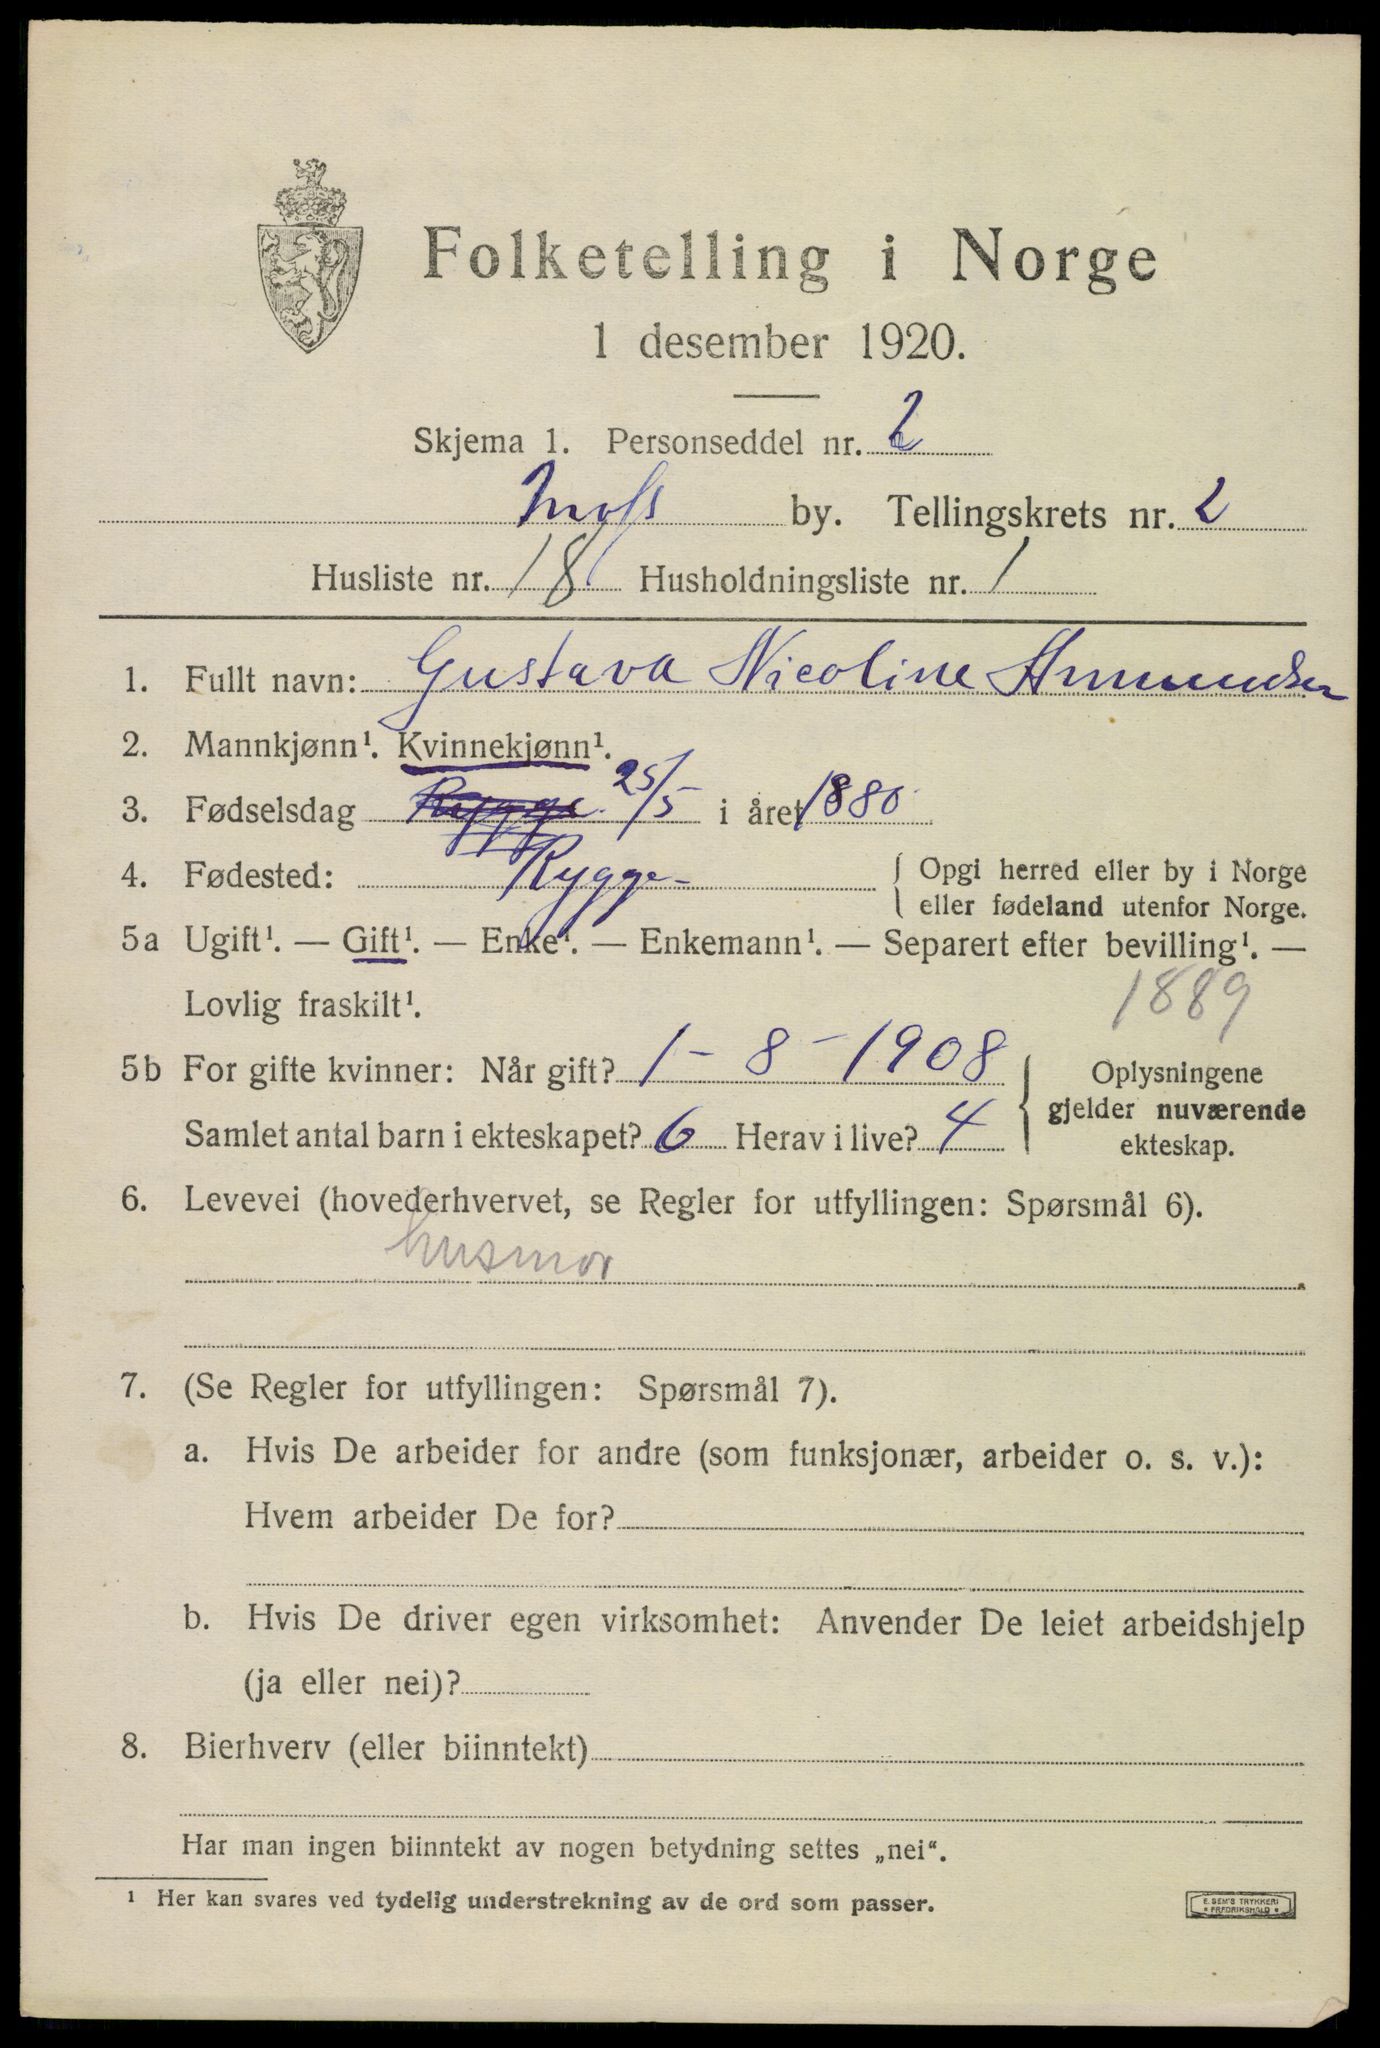 Folketelling i Norge
1 desember 1920.
Skjema 1. Personseddel nr. 2
Moss by. Tellingskrets nr. 2
Husliste nr. 18 Husholdningsliste nr. 1
1. Fullt navn: Gustava Nicoline Amundsen
2. Mannkjønn¹. Kvinnekjønn¹.
3. Fødselsdag Rygge 25/5 i året 1880
4. Fødested: Rygge - { Opgi herred eller by i Norge
eller fødeland utenfor Norge.
5a Ugift¹. — Gift¹. — Enke¹. — Enkemann¹. — Separert efter bevilling¹. —
Lovlig fraskilt¹. 1889
5b For gifte kvinner: Når gift? 1 - 8 - 1908
Samlet antal barn i ekteskapet? 6 Herav i live? 4
Oplysningene
gjelder nuværende
ekteskap.
6. Levevei (hovederhvervet, se Regler for utfyllingen: Spørsmål 6).
husmor
7. (Se Regler for utfyllingen: Spørsmål 7).
a. Hvis De arbeider for andre (som funksjonær, arbeider o. s. v.):
Hvem arbeider De for?
b. Hvis De driver egen virksomhet: Anvender De leiet arbeidshjelp
(ja eller nei)?
8. Bierhverv (eller biinntekt)
Har man ingen biinntekt av nogen betydning settes „nei“.
¹ Her kan svares ved tydelig understrekning av de ord som passer.
E. SEM'S TRYKKERI
• FREDRIKSHALD •